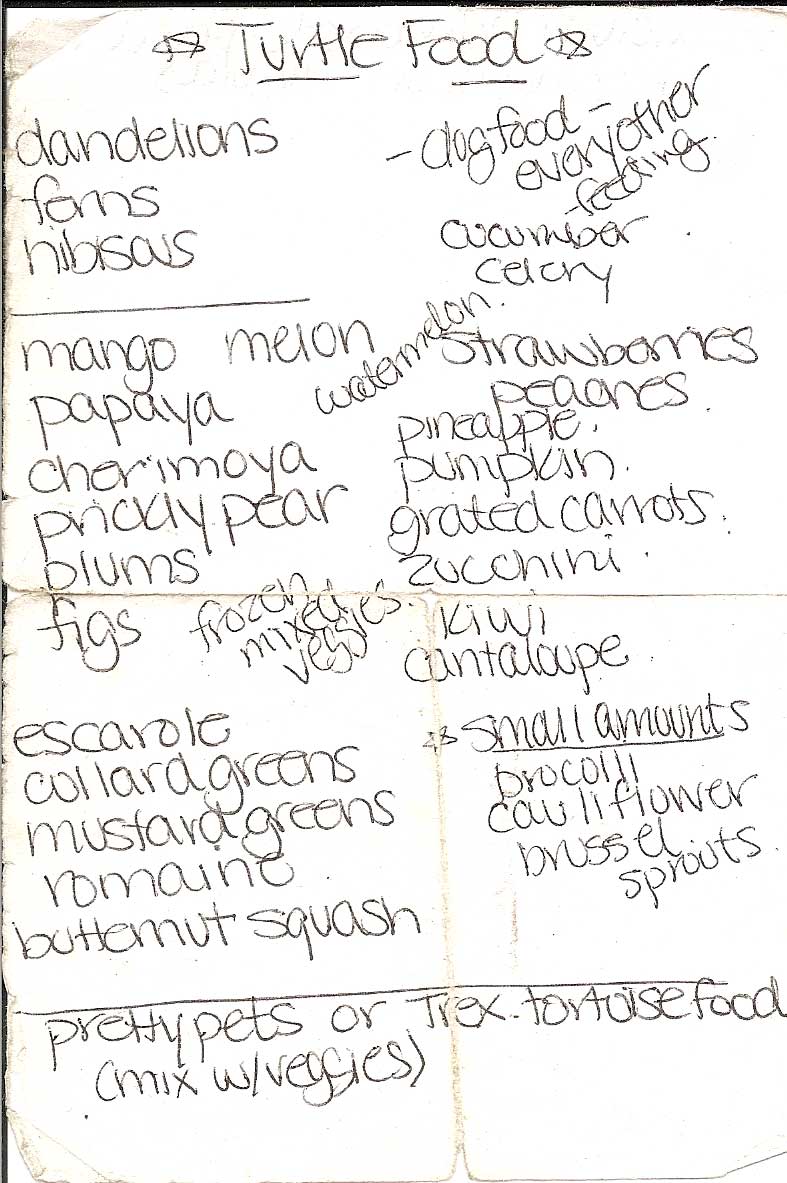 ☆ Turtle Food ☆
dandelions
ferns
hibiscus
- dog food -
every other
feeding.
cucumber
celery
mango melon
watermelon.
papaya
cherimoya
prickly pear
plums
figs
frozen
mixed
veggies.
strawberries
peaches
pineapple.
pumpkin.
grated carrots.
zucchini.
kiwi
cantaloupe
escarole
collard greens
mustard greens
romaine
butternut squash
☆ small amounts
brocolli
cauliflower
brussel
sprouts
pretty pets or Trex tortoise food
(mix w/veggies)